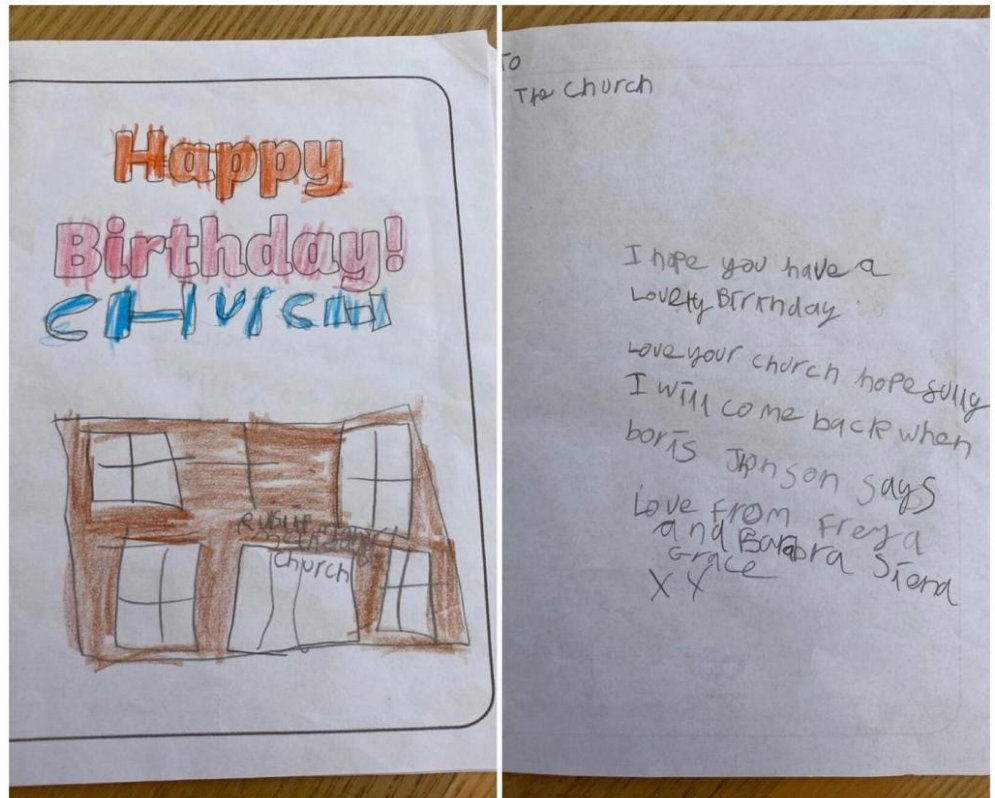 Happy
Birthday!
CHURCH
church
To
The church
I hope you have a
Lovely Birthday
Love your church hopefully
I will come back when
boris Jonson says
Love From Freya
and Barabra Siena
Grace
X X